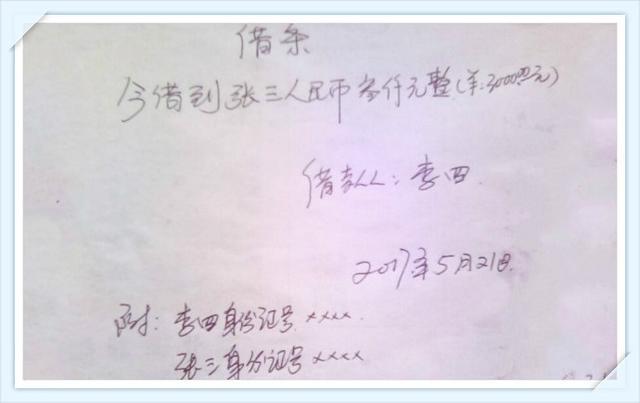 借条
今借到张三人民币叁仟元整(￥:3000.00元)
借款人:李四
2017年5月21日
附:李四身份证号××××
张三身份证号××××